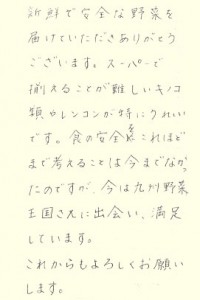 新鮮で安全な野菜を
届けていただきありがとう
ございます。スーパーで
揃えることが難しいキノコ
類やレンコンが特にうれしい
です。食の安全をこれほど
まで考えることは今までなかっ
たのですが、今は九州野菜
王国さんに出会い、満足
しています。
これからもよろしくお願い
します。